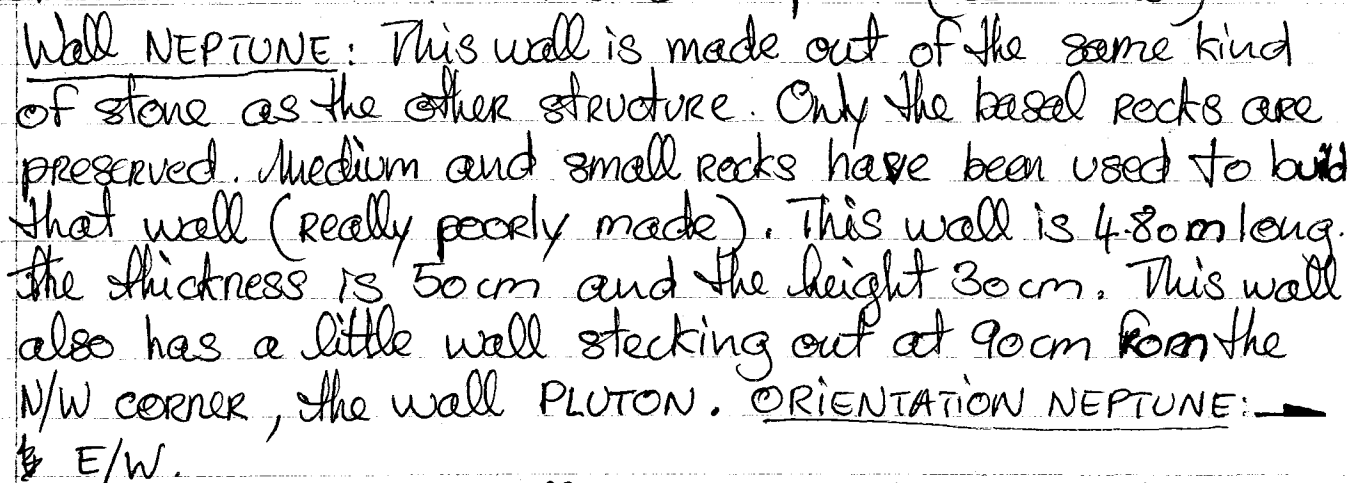 Wall NEPTUNE: This wall is made out of the same kind
of stone as the other structure. Only the basal rocks are
preserved. Medium and small rocks have been used to build
that wall (really poorly made). This wall is 4.80m long.
The thickness is 50cm and the height 30cm. This wall
also has a little wall stecking out at 90cm from the
N/W corner, the wall PLUTON. ORIENTATION NEPTUNE:
E/W.